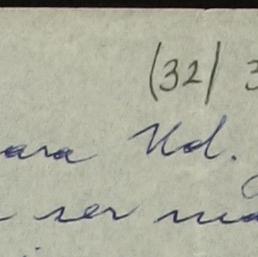 (32) 3
ara Ud.
ser